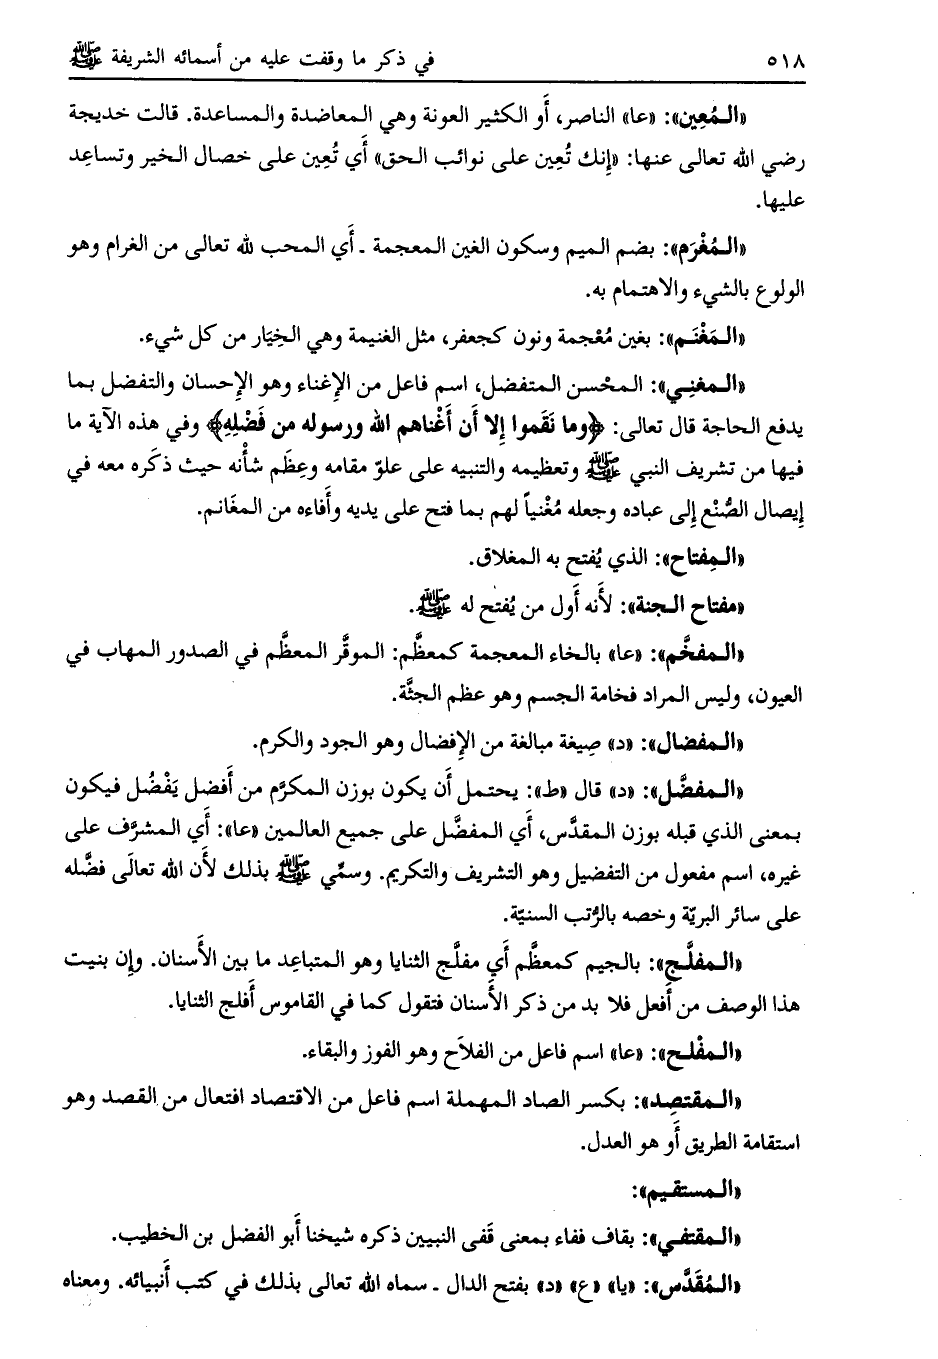 ٥١٨ في ذكر ما وقفت عليه من أسمائه الشريفة ﷺ
«المُعِين»: «عا» الناصر، أَو الكثير العونة وهي المعاضدة والمساعدة. قالت خديجة
رضي الله تعالى عنها: «إِنك تُعِين على نوائب الحق» أَي تُعِين على خصال الخير وتساعِد
عليها.
«المُغْرَم»: بضم الميم وسكون الغين المعجمة ـ أَي المحب لله تعالى من الغرام وهو
الولوع بالشيء والاهتمام به.
«المَغْنَم»: بغين مُعْجمة ونون كجعفر، مثل الغنيمة وهي الخِيَار من كل شيء.
«المغنِي»: المحْسن المتفضل، اسم فاعل من الإِغناء وهو الإِحسان والتفضل بما
يدفع الحاجة قال تعالى: ﴿وما نَقَموا إِلا أَن أَغْناهم الله ورسوله من فَضْلِهِ﴾ وفي هذه الآية ما
فيها من تشريف النبي ﷺ وتعظيمه والتنبيه على علوّ مقامه وعِظَم شأْنه حيث ذكَره معه في
إِيصال الصُّنْع إِلى عباده وجعله مُغْنياً لهم بما فتح على يديه وأَفاءه من المغَانم.
«المِفتاح»: الذي يُفتح به المغلاق.
«مفتاح الجنة»: لأَنه أَول من يُفتح له ﷺ.
«المفخَّم»: «عا» بالخاء المعجمة كمعظَّم: الموقَّر المعظَّم في الصدور المهاب في
العيون، وليس المراد فخامة الجسم وهو عظم الجثَّة.
«المفضال»: «د» صِيغة مبالغة من الإِفضال وهو الجود والكرم.
«المفضَّل»: «د» قال «ط»: يحتمل أَن يكون بوزن المكرَّم من أَفضل يَفْضُل فيكون
بمعنى الذي قبله بوزن المقدَّس، أَي المفضَّل على جميع العالمين «عا»: أَي المشرَّف على
غيره، اسم مفعول من التفضيل وهو التشريف والتكريم. وسمِّي ﷺ بذلك لأَن الله تعالَى فضَّله
على سائر البريّة وخصه بالرُّتب السنيّة.
«المفلَّج»: بالجيم كمعظَّم أَي مفلَّج الثنايا وهو المتباعِد ما بين الأَسنان. وإِن بنيت
هذا الوصف من أَفعل فلا بد من ذكر الأَسنان فتقول كما في القاموس أَفلج الثنايا.
«المفْلح»: «عا» اسم فاعل من الفلاَح وهو الفوز والبقاء.
«المقتصِد»: بكسر الصاد المهملة اسم فاعل من الاقتصاد افتعال من القصد وهو
استقامة الطريق أَو هو العدل.
«المستقيم»:
«المقتفي»: بقاف ففاء بمعنى قَفى النبيين ذكره شيخنا أَبو الفضل بن الخطيب.
«المُقَدَّس»: «يا» «ع» «د» بفتح الدال ـ سماه الله تعالى بذلك في كتب أَنبيائه. ومعناه